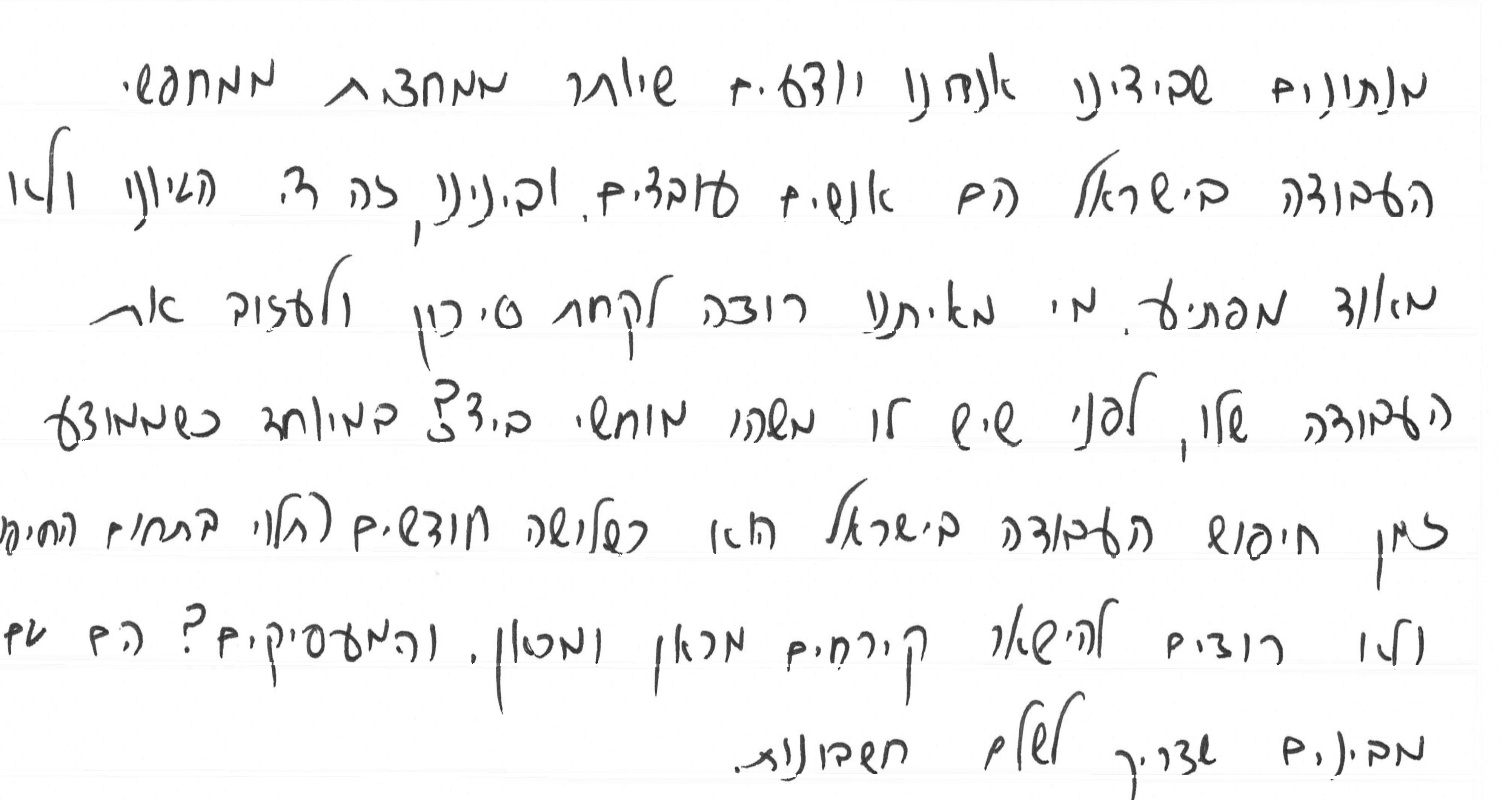 מנתונים שבידינו אנחנו יודעים שיותר ממחצית ממחפשי
העבודה בישראל הם אנשים עובדים. ובינינו, זה די הגיוני ולא
מאוד מפתיע. מי מאיתנו רוצה לקחת סיכון ולעזוב את
העבודה שלו, לפני שיש לו משהו מוחשי ביד? במיוחד כשממוצע
זמן חיפוש העבודה בישראל הוא כשלושה חודשים (תלוי בתחום
ולא רוצים להישאר קירחים מכאן ומכאן. והמעסיקים? הם גם
מבינים שצריך לשלם חשבונות.